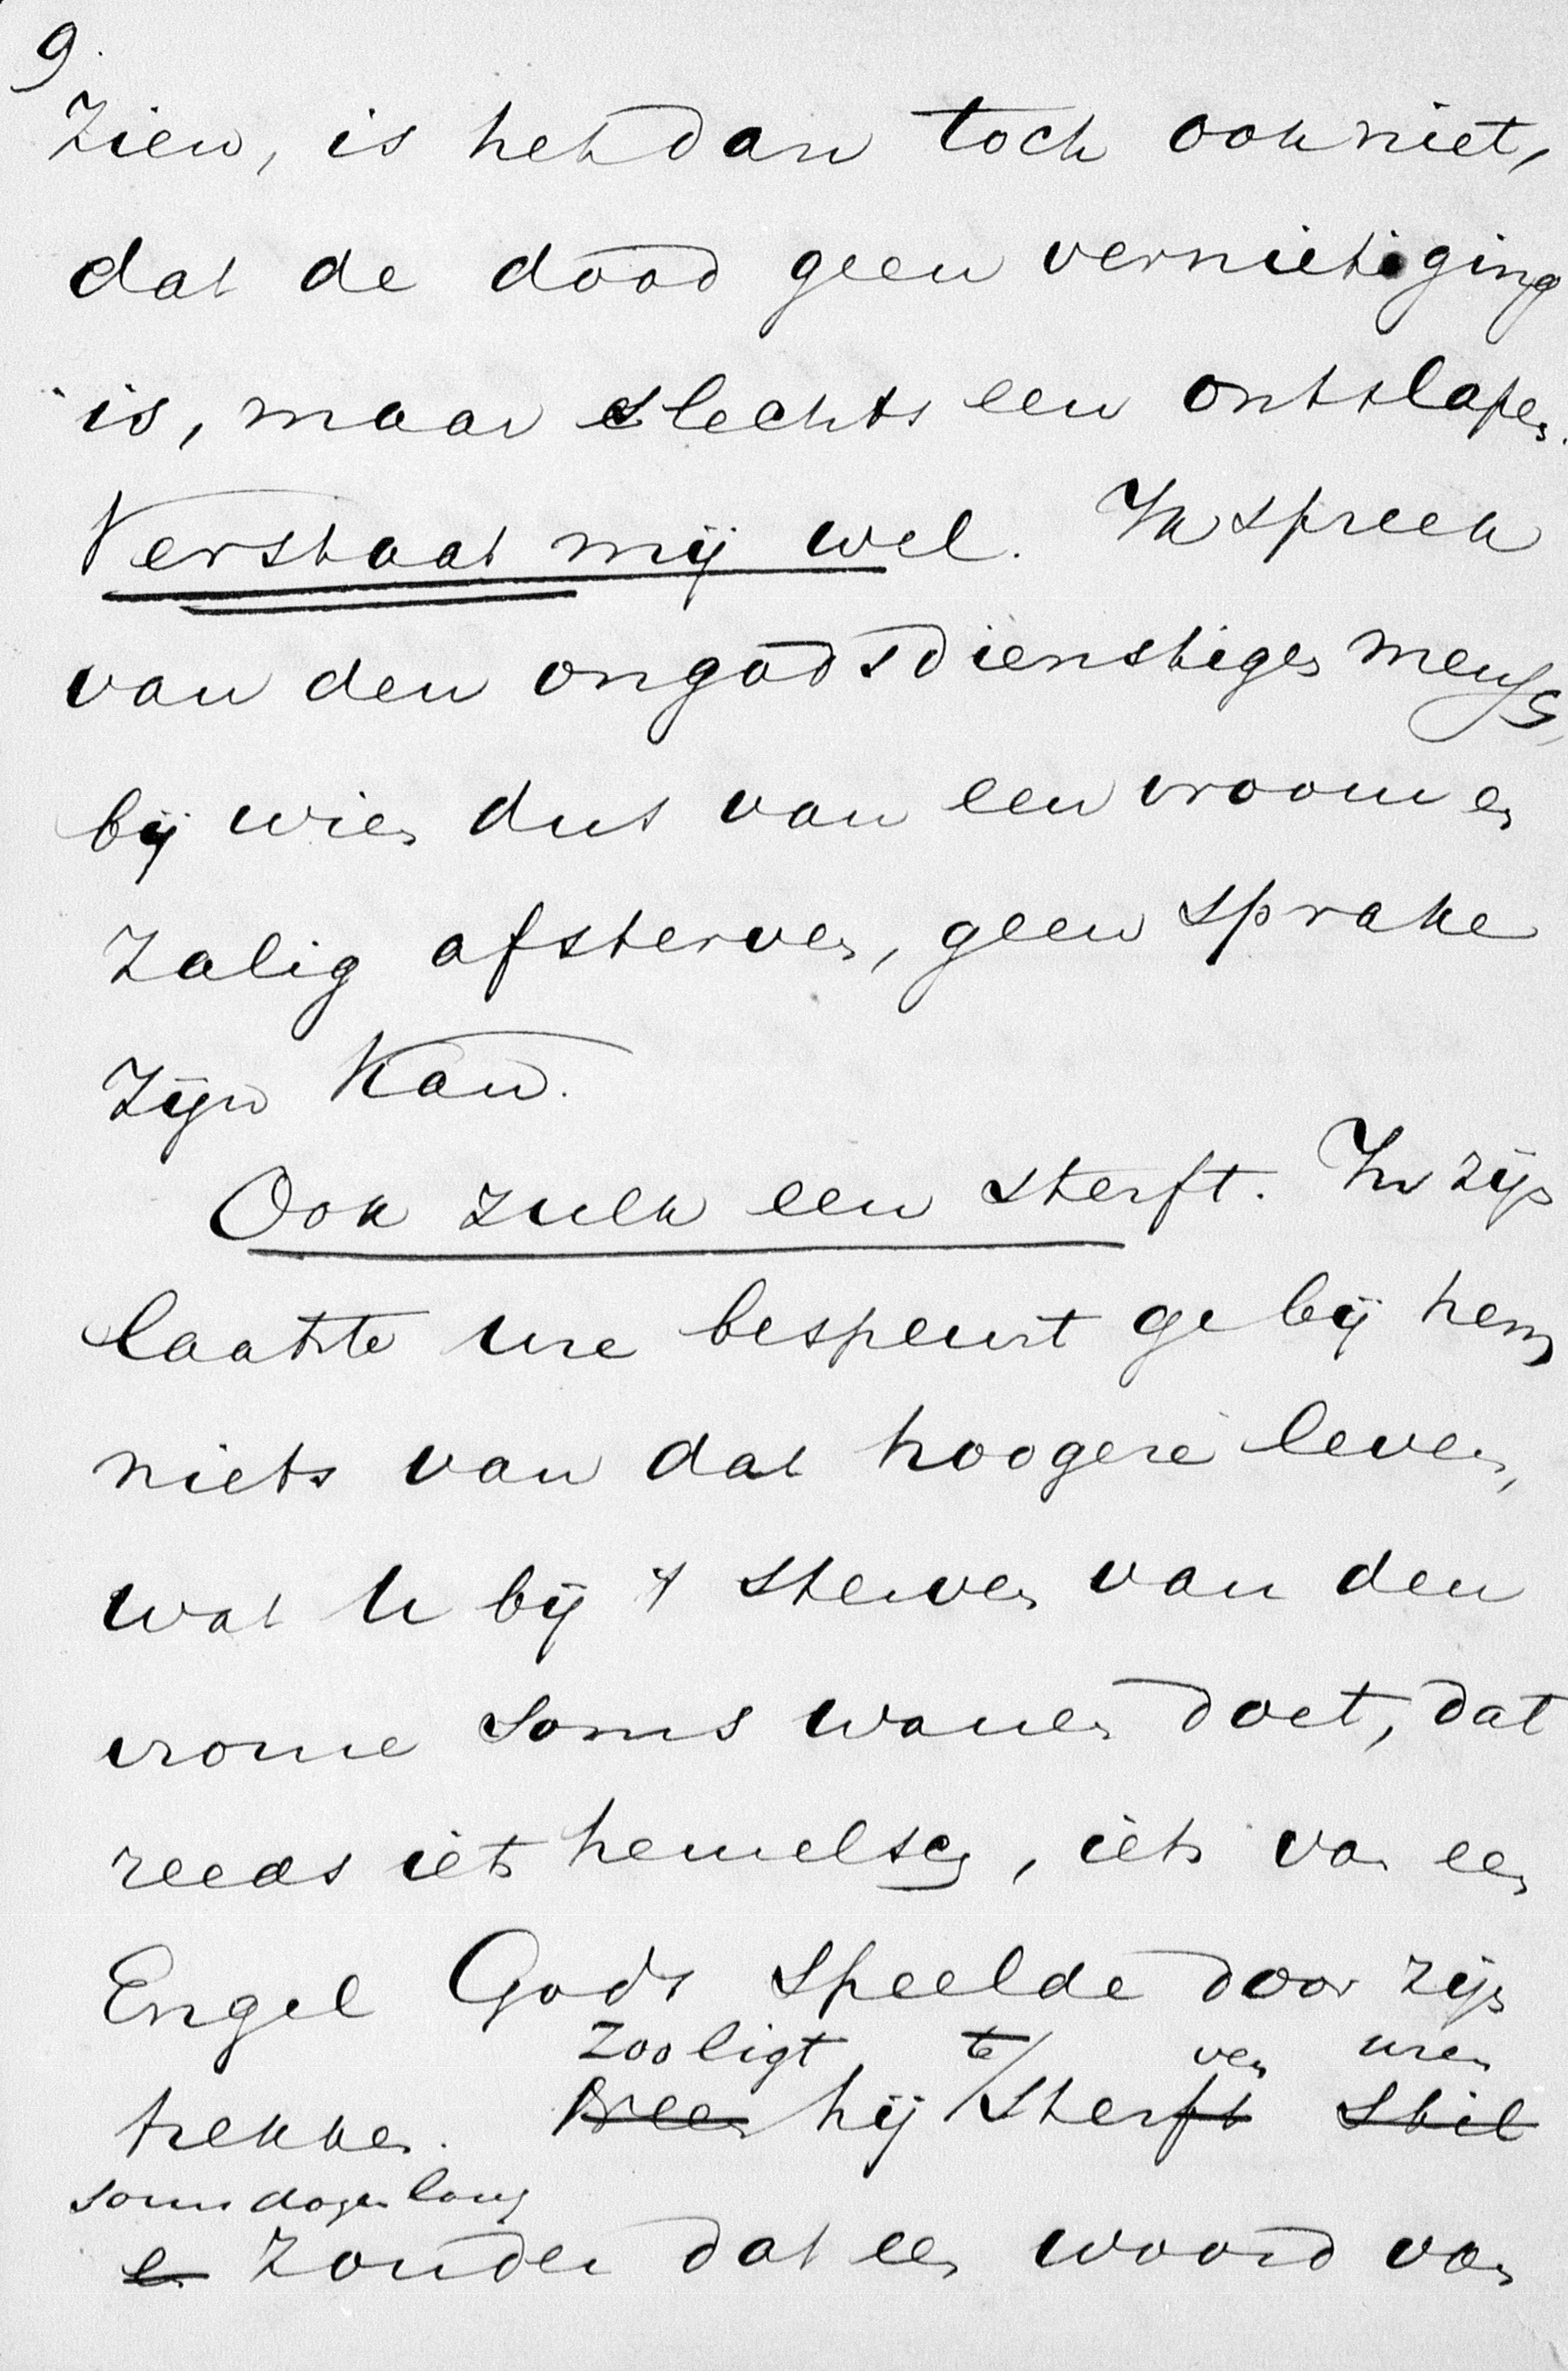 9.
Zien, is het dan toch ook niet,
dat de dood geen vernietiging
is, maar slechts een ontslapen.
Verstaat mij wel. Ik spreek
van den ongodsdienstigen mensch,
bij wien dus van een vroom en
zalig afsterven, geen sprake
zijn kan.
Ook zulk een sterft. In zijn
laatste ure bespeurt ge bij hem
niets van dat hoogere leven,
wat U bij 't sterven van den
vrome soms wanen doet, dat
reeds iets hemelsch, iets van een
Engel Gods speelde door zijn
Zoo ligt te ven uren
trekken. hij Sterft Stil
soms dagen lang
en zonder dat een woord van